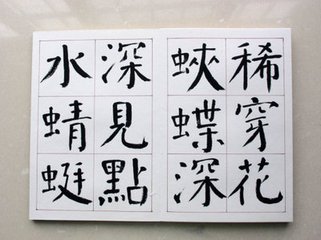 稀穿花
蛺蝶深
深見點
水蜻蜓